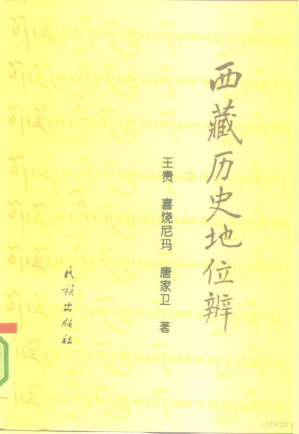 西藏历史地位辨
王贵 喜饶尼玛 唐家卫 著
民族出版社